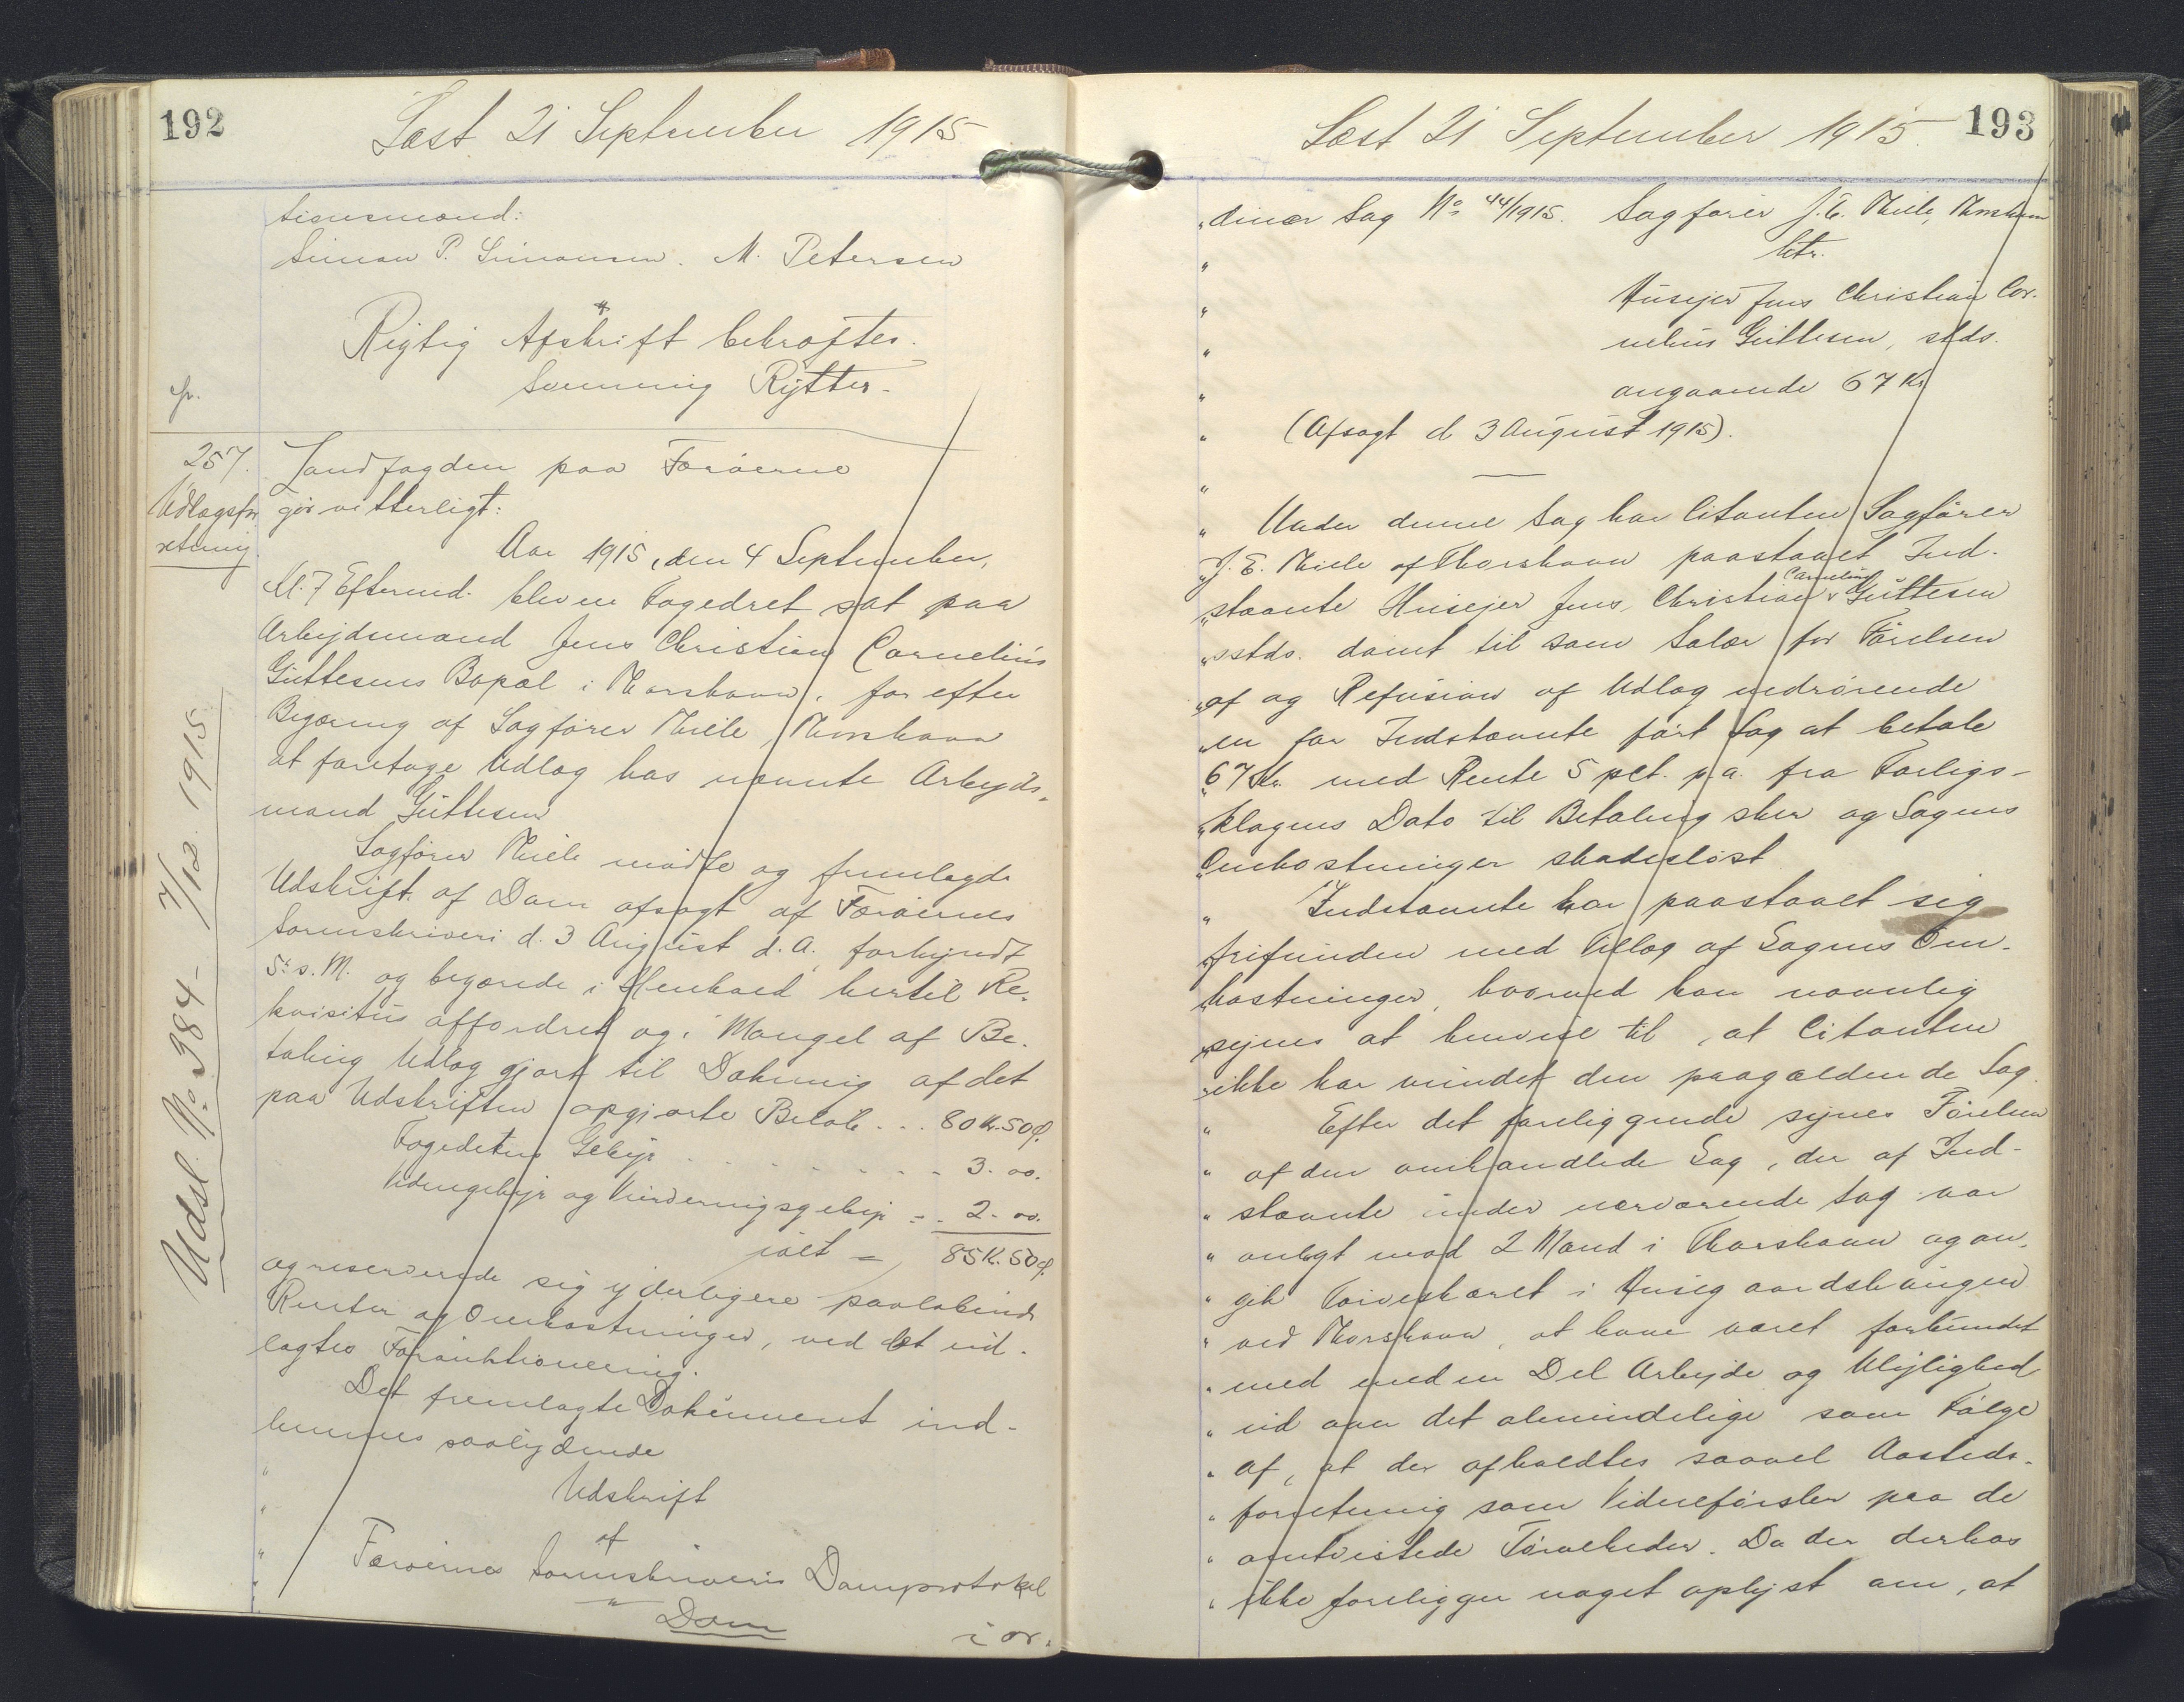 192
Læst 21 September 1915
tionsmænd:
Simon P. Simonsen. M. Petersen
Rigtig Afskrift bekræftes.
Svenning Rytter.
fr.
257.
Udlagsfor
retning.
Landfogden paa Færøerne
gør vitterligt:
Aar 1915, den 4 September,
Kl. 7 Eftermd. blev en Fogedret sat paa
Arbejdsmand Jens Christian Cornelius
Guttesens Bopæl i Thorshavn, for efter
Begæring af Sagfører Thiele, Thorshavn
at foretage Udlæg hos nævnte Arbejds-
mand Guttesen
Sagfører Thiele mødte og fremlagde
Udskrift af Dom afsagt af Færøernes
Sorenskriveri d. 3 August d. A. forkyndt
5. s. M. og begærede i Henhold hertil Re-
kvisitus affordret og i Mangel af Be-
taling Udlæg gjort til Dækning af det
paa Udskriften opgjorte Beløb . . . 80 Kr. 50 Ø.
Fogedrettens Gebyr . . . . . . . . . 3. 00.
Vidnegebyr og Vurderingsgebyr - . 2. 00.
ialt = 85 K. 50 Ø.
og reserverede sig yderligere paaløbende
Renter og Omkostninger, ved det ud-
lagtes Forauktionering.
Det fremlagte Dokument ind-
lemmes saalydende
" Udskrift
" af
" Færøernes Sorenskriveris Domprotokol
" Dom
i or-
Udsl. No 384 - 7/12. 1915
193
Læst 21 September 1915
" dinær Sag No 44/1915. Sagfører J. E. Thiele, Thorshavn
" ctr.
" Husejer Jens Christian Cor-
" nelius Guttesen, sstds.
" angaaende 67 Kr.
" (Afsagt d 3 August 1915).
"
" Under denne Sag har Citanten Sagfører
" J. E. Thiele af Thorshavn paastaaet Ind-
" stævnte Husejer Jens Christian Cornelius Guttesen
" sstds. dømt til som Salær for Førelsen
" af og Refusion af Udlæg vedrørende
" en for Indstævnte ført Sag at betale
" 67 Kr. med Rente 5 pct. p. a. fra Forligs-
" klagens Dato til Betaling sker og Sagens
" Omkostninger skadesløst
" Indstævnte har paastaaet sig
" frifunden med Tillæg af Sagens Om-
" kostninger, hvorved han navnlig
" synes at henvise til, at Citanten
" ikke har vundet den paagældende Sag.
" Efter det foreliggende synes Førelsen
" af den omhandlede Sag, der af Ind-
" stævnte under nærværende Sag var
" anlagt mod 2 Mænd i Thorshavn og an-
" gik Tørveskæret i Husig aardshaugen
" ved Thorshavn, at have været forbundet
" med en Del Arbejde og Ulejlighed
" ud over det almindelige som Følge
" af, at der afholdtes saavel Aasteds-
" forretning som Vidneførsler paa de
" omtvistede Tørveheder. Da der derhos
" ikke foreligger noget oplyst om, at